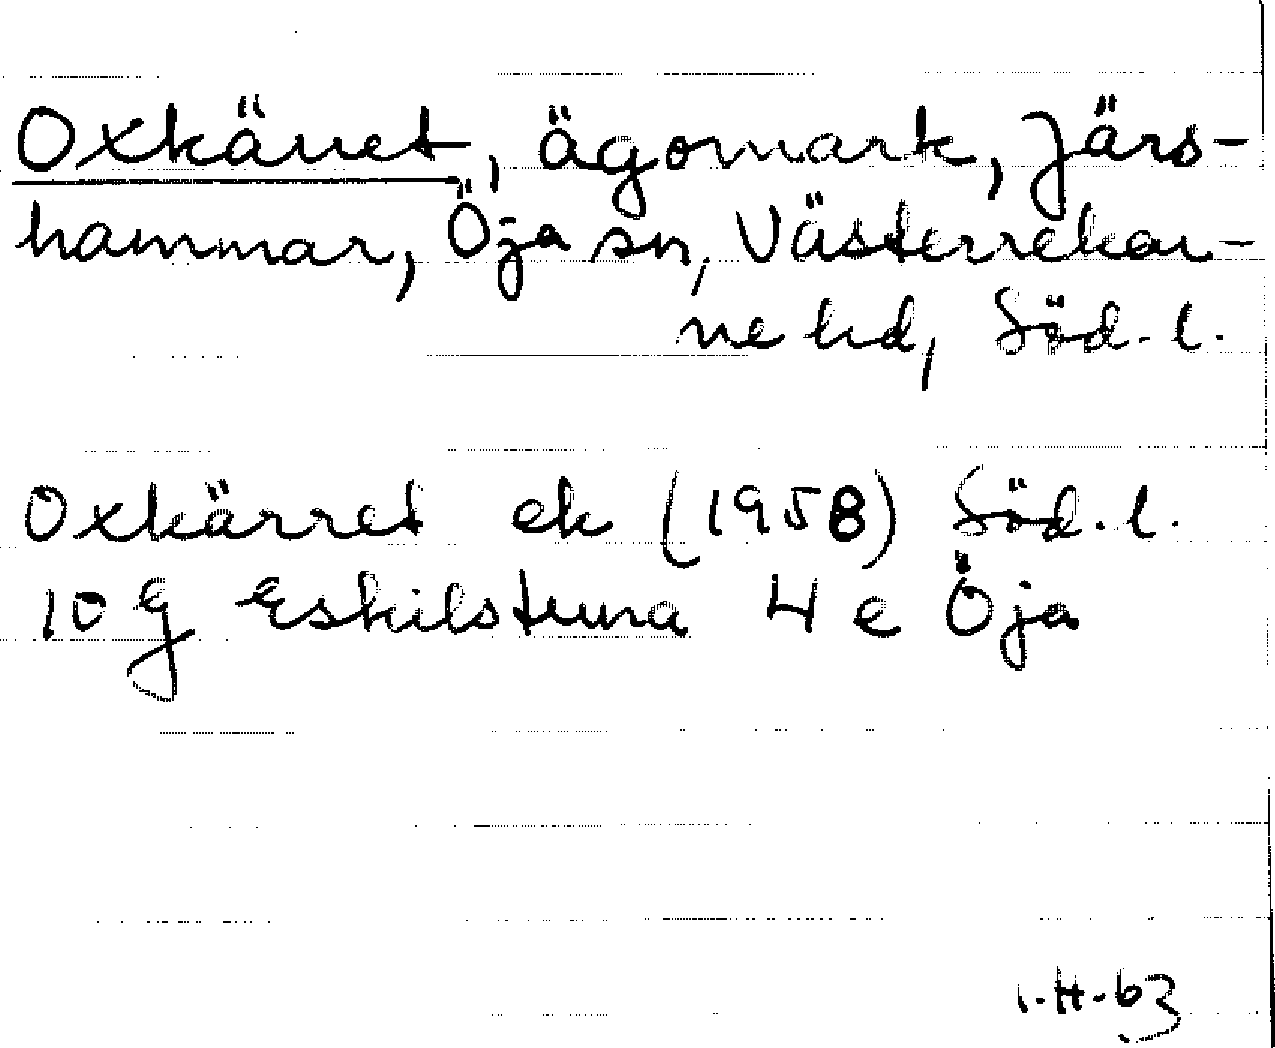 Oxkärret, ägomark, Järs-
hammar, Öja sn, Västerrekar-
ne hd, Söd. l.
Oxkärret ek (1958) Söd. l.
10 G Eskilstuna 4 e Öja
I.H.63